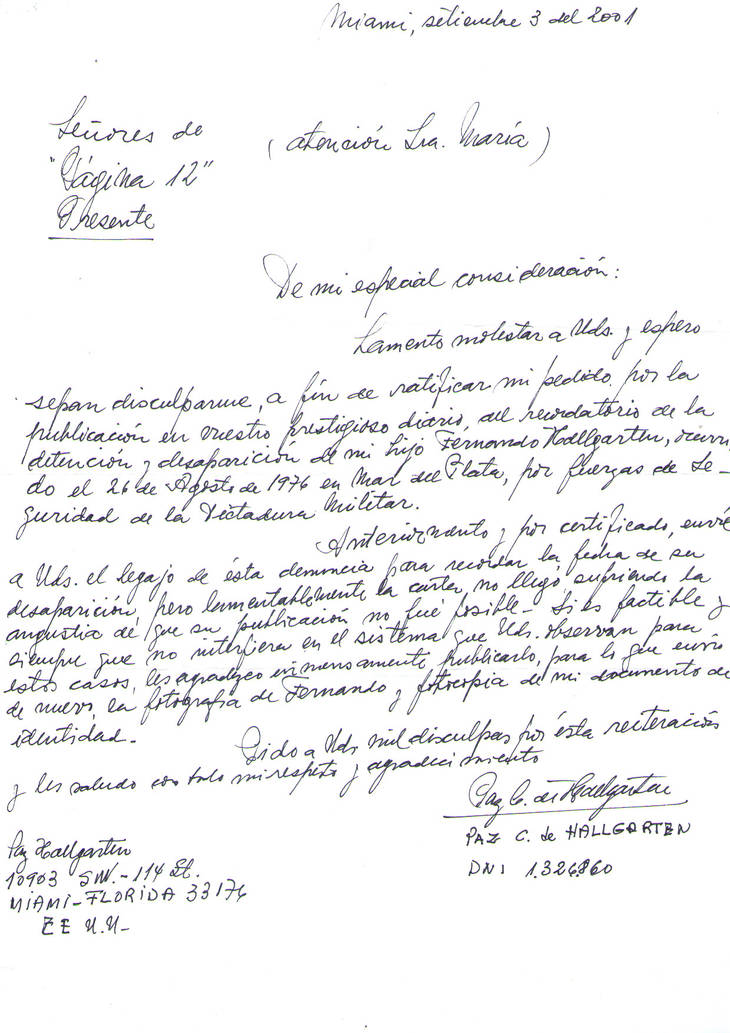 Miami, setiembre 3 del 2001
Señores de
(atención Sra. María)
"Página 12"
Presente
De mi especial consideración:
Lamento molestar a Uds. y espero
sepan disculparme, a fín de ratificar mi pedido por la
publicación en vuestro prestigioso diario, del recordatorio de la
detención y desaparición de mi hijo Fernando Hallgarten, ocurri
do el 26 de Agosto de 1976 en Mar del Plata, por fuerzas de Se-
guridad de la Dictadura Militar.
Anteriormente y por certificado, envié
a Uds. el legajo de ésta denuncia para recordar la fecha de su
desaparición, pero lamentablemente la carta no llegó sufriendo la
angustia de que su publicación no fué posible- Si es factible y
siempre que no interfiera en el sistema que Uds. observan para
estos casos, les agradezco inmensamente publicarlo, para lo que envío
de nuevo, la fotografía de Fernando y fotocopia de mi documento de
identidad.-
Pido a Uds mil disculpas por ésta reiteración
y les saludo con todo mi respeto y agradecimiento
Paz C. de Hallgarten
PAZ C. de HALLGARTEN
DNI 1.326.860
Paz Hallgarten
10903 SW.-114 St.
MIAMI-FLORIDA 33176
EE U.U-